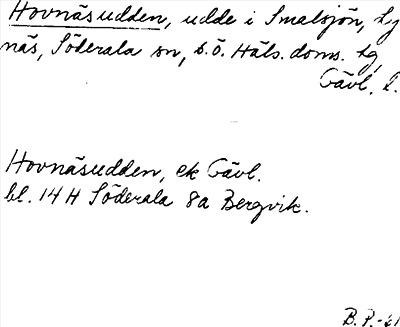 Hovnäsudden, udde i Smalsjön, Ly
näs, Söderala sn, s.ö. Häls. doms. lg,
Gävl. l.
Hovnäsudden, ek Gävl.
bl. 14 H Söderala 8a Bergvik.
B.P.-61